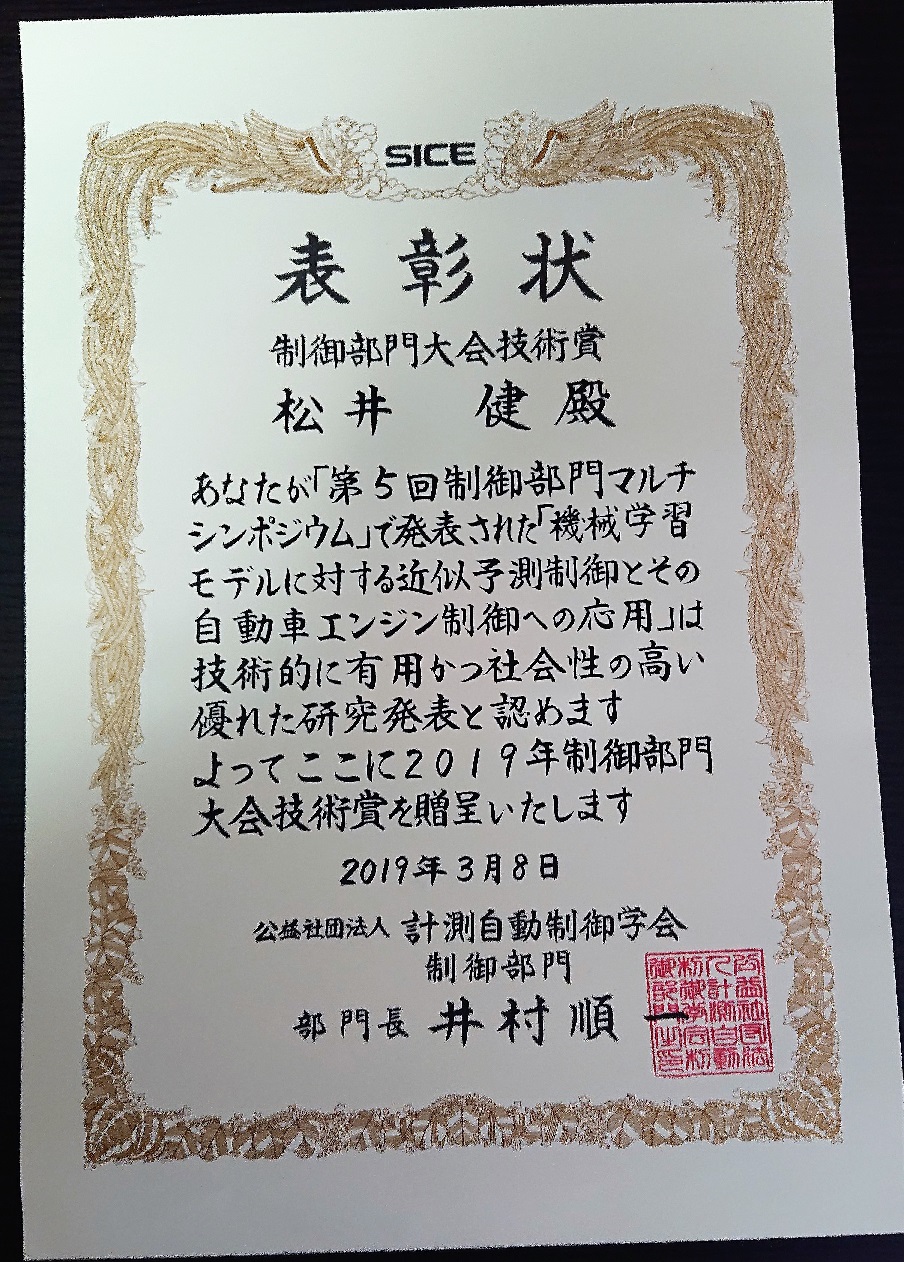 SICE
表彰状
制御部門大会技術賞
松井 健 殿
あなたが「第5回制御部門マルチ
シンポジウム」で発表された「機械学習
モデルに対する近似予測制御とその
自動車エンジン制御への応用」は
技術的に有用かつ社会性の高い
優れた研究発表と認めます
よってここに2019年制御部門
大会技術賞を贈呈いたします
2019年3月8日
公益社団法人 計測自動制御学会
制御部門
部門長 井村順一